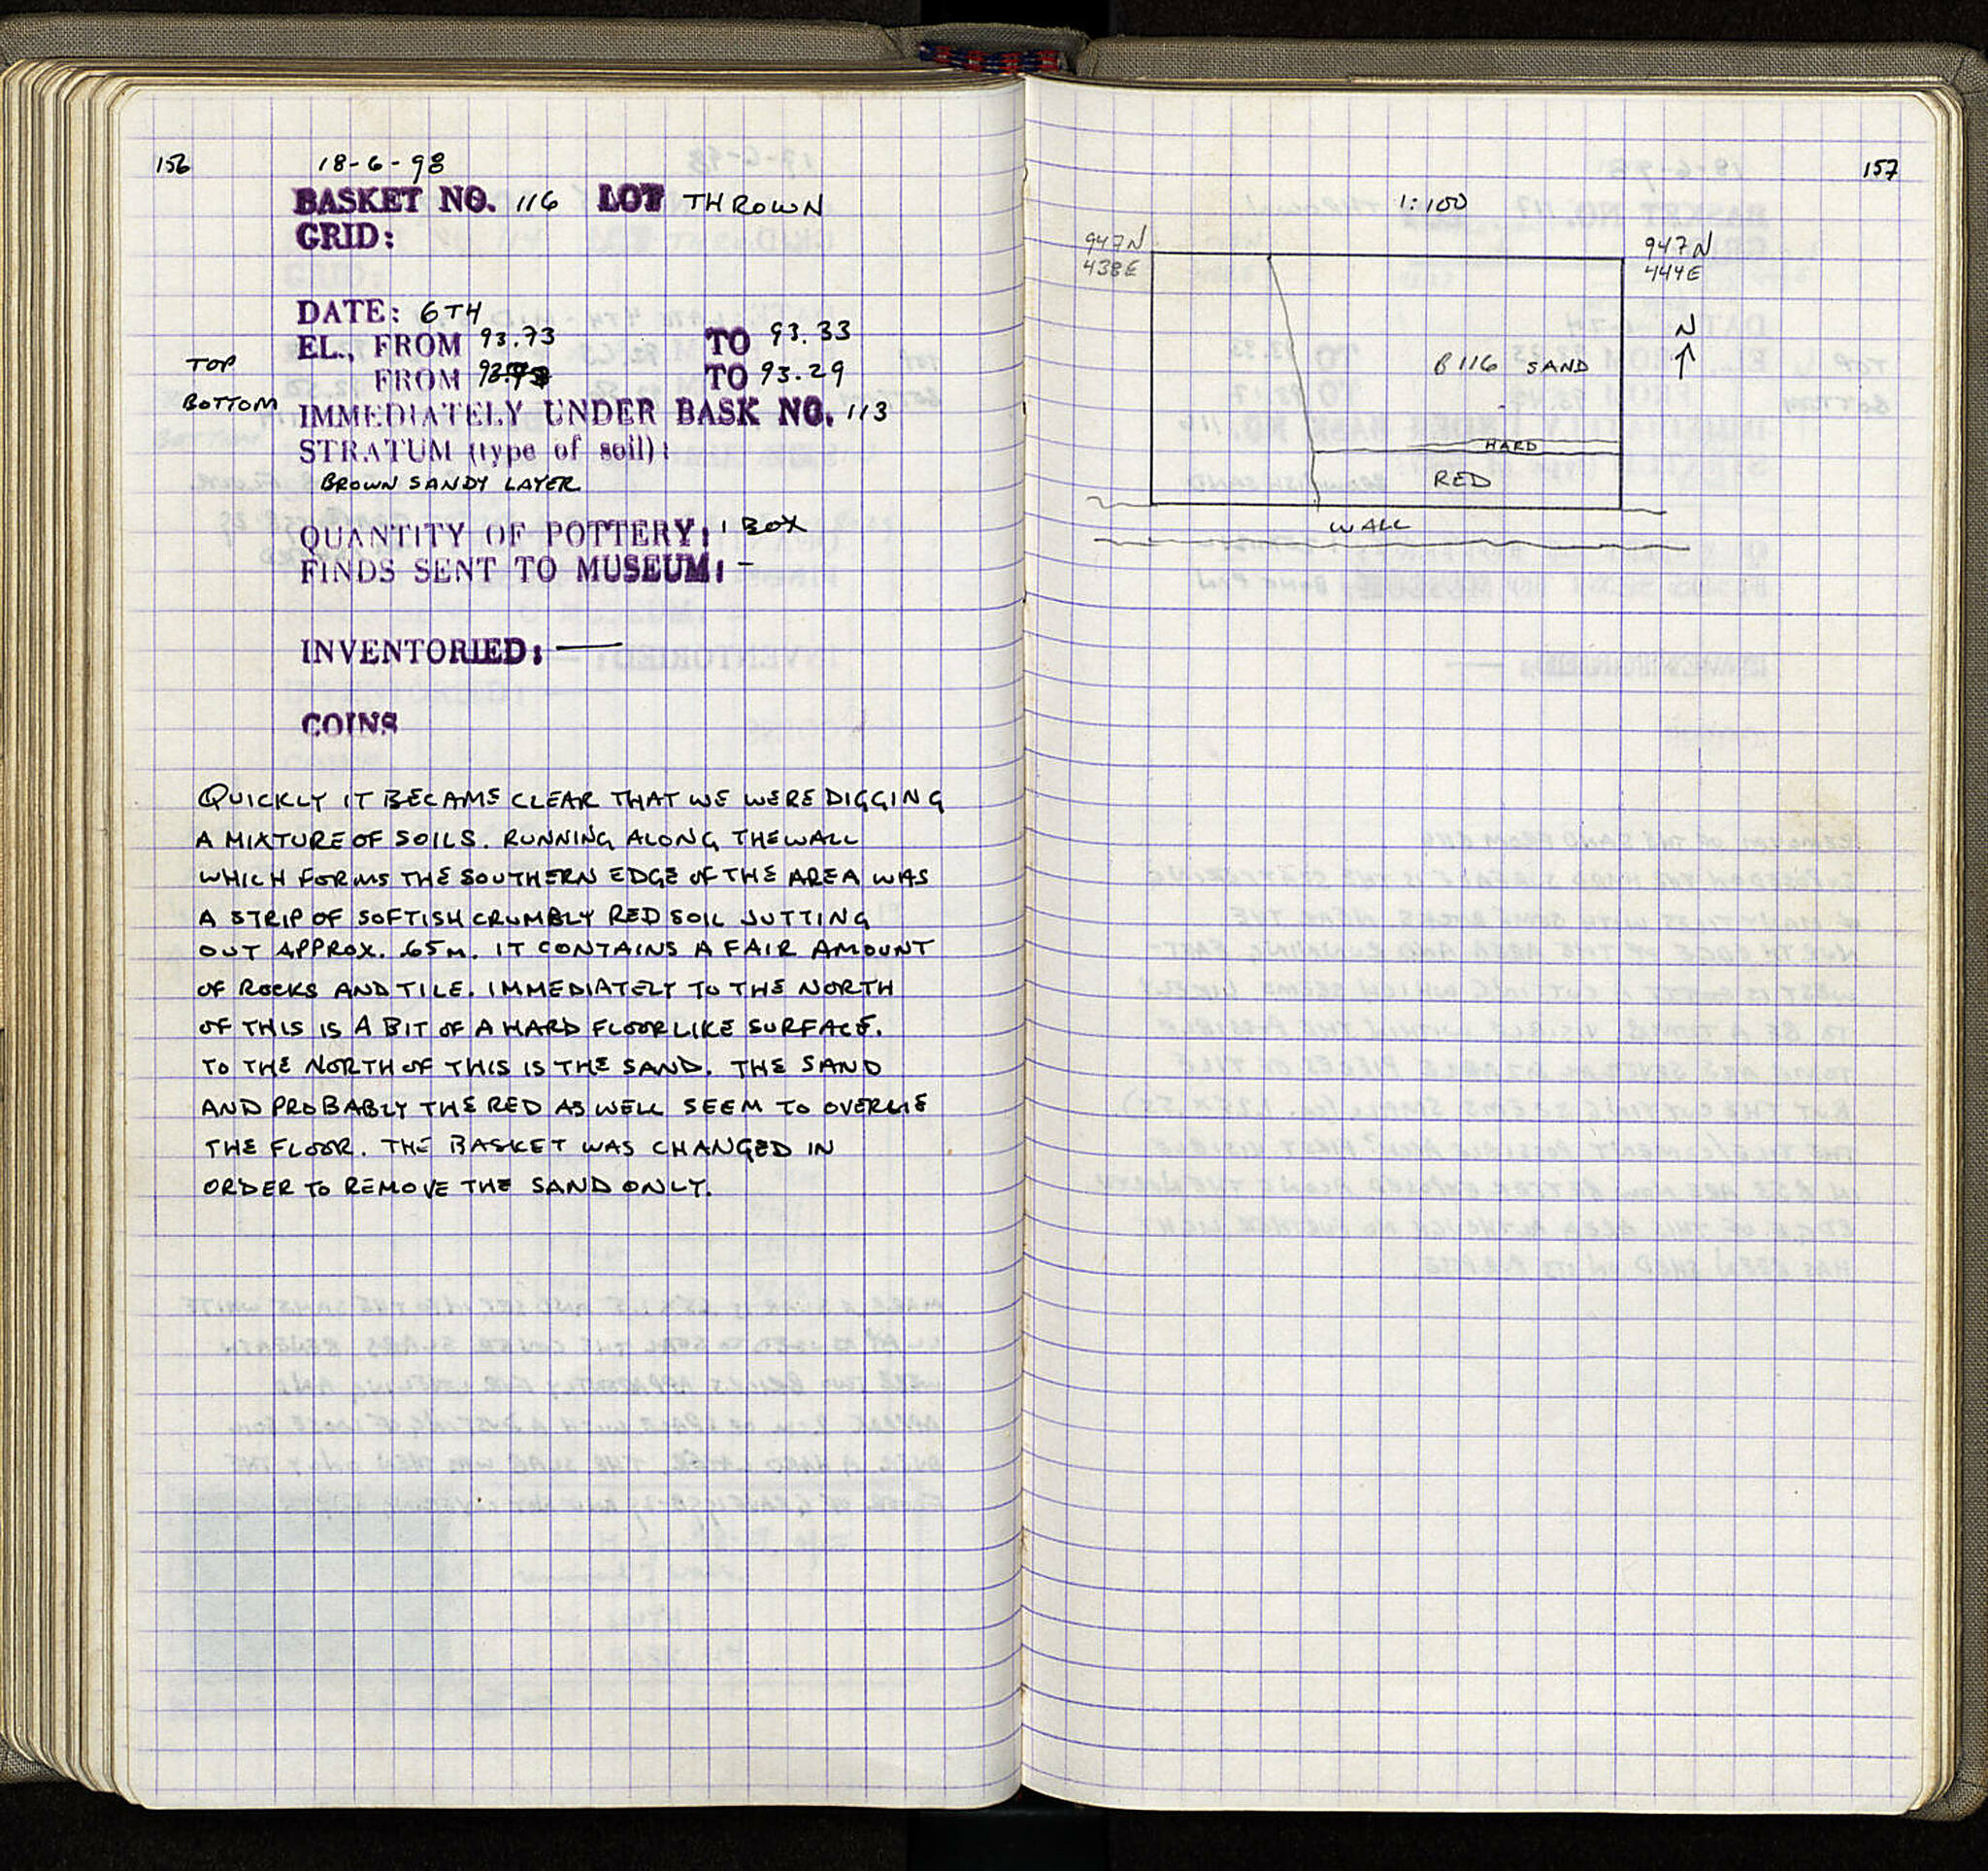 156
18-6-98
BASKET NO. 116 LOT THROWN
GRID:
DATE: 6TH
EL., FROM 93.73 TO 93.33
TOP
FROM TO 93.29
BOTTOM
IMMEDIATELY UNDER BASK NO. 113
STRATUM (type of soil):
BROWN SANDY LAYER
QUANTITY OF POTTERY: 1 BOX
FINDS SENT TO MUSEUM: -
INVENTORIED: —
COINS
QUICKLY IT BECAME CLEAR THAT WE WERE DIGGING
A MIXTURE OF SOILS. RUNNING ALONG THE WALL
WHICH FORMS THE SOUTHERN EDGE OF THE AREA WAS
A STRIP OF SOFTISH CRUMBLY RED SOIL JUTTING
OUT APPROX. .65M. IT CONTAINS A FAIR AMOUNT
OF ROCKS AND TILE. IMMEDIATELY TO THE NORTH
OF THIS IS A BIT OF A HARD FLOORLIKE SURFACE.
TO THE NORTH OF THIS IS THE SAND. THE SAND
AND PROBABLY THE RED AS WELL SEEM TO OVERLIE
THE FLOOR. THE BASKET WAS CHANGED IN
ORDER TO REMOVE THE SAND ONLY.
157
1:100
947N
438E
947N
444E
N
B116 SAND
HARD
RED
WALL